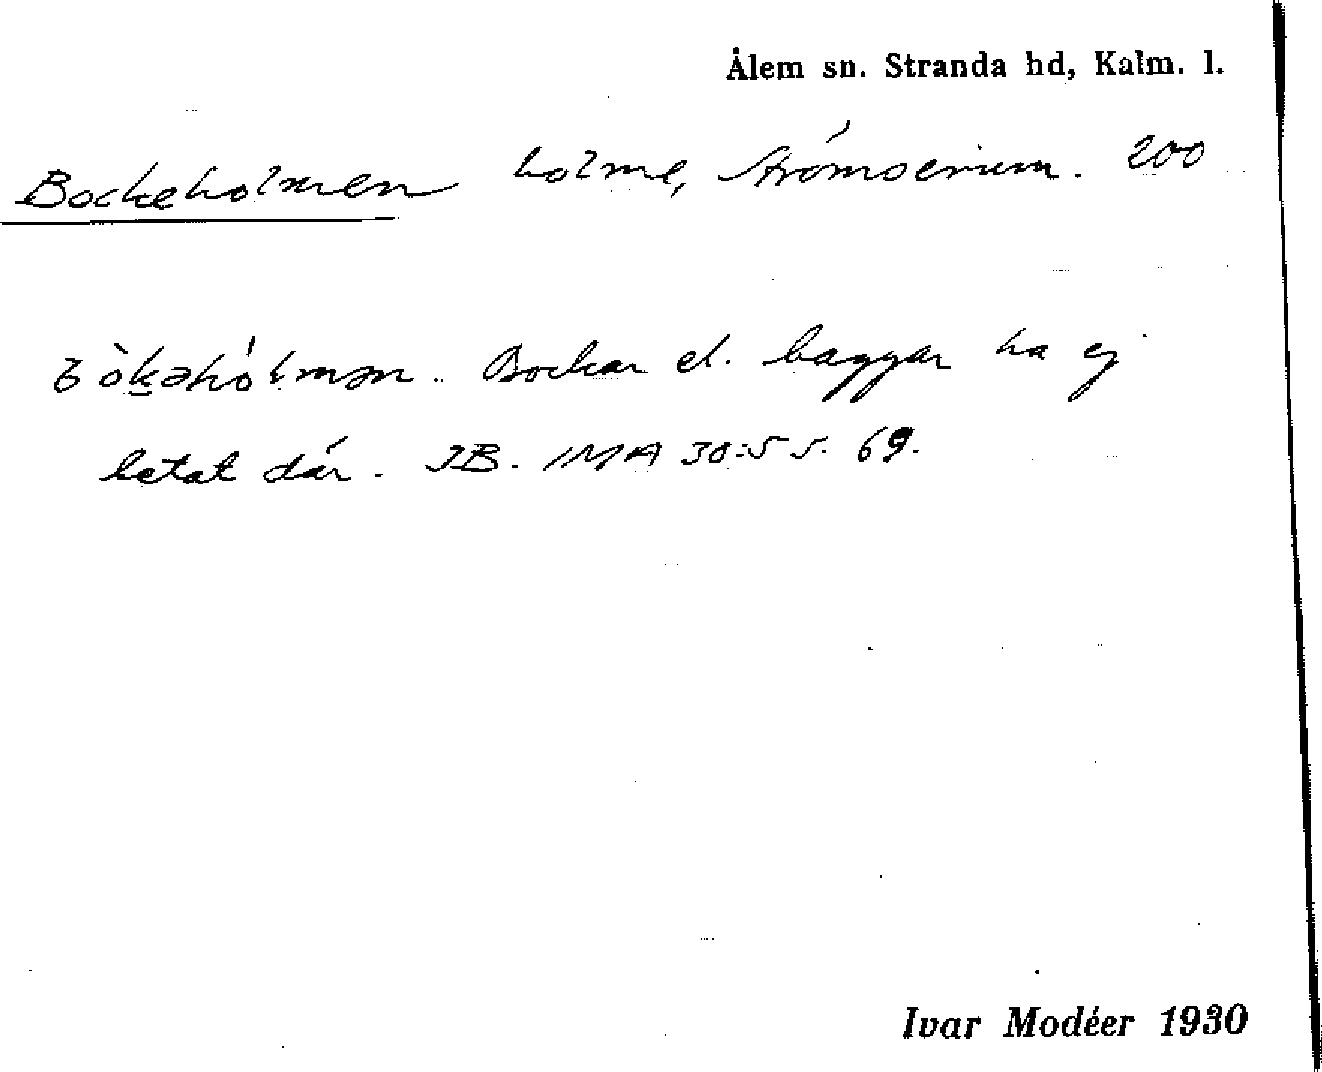 Ålem sn. Stranda hd, Kalm. l.
Bockeholmen holme, Strömserum. 200
bòkəhólmən. Bockar el. baggar ha ej
betat där. JB. IMA 30:5 s. 69.
Ivar Modéer 1930